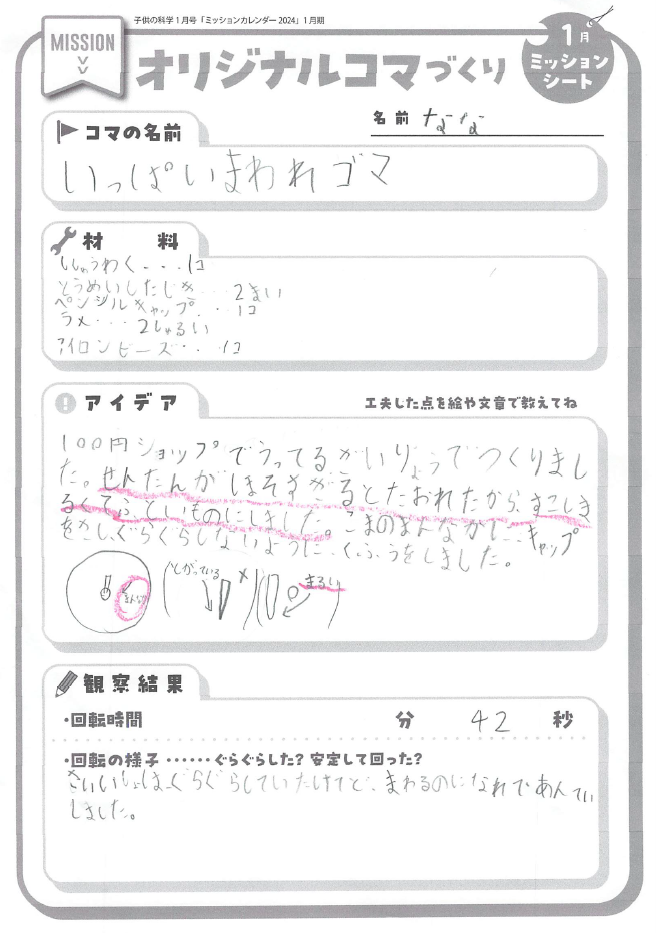 子供の科学1月号「ミッションカレンダー2024」1月期
MISSION
オリジナルコマづくり
1月
ミッション
シート
名前 なな
コマの名前
いっぱいまわれゴマ
材料
ししゅうわく...1コ
とうめいしたじき...2まい
ペンシルキャップ...1コ
ラメ...2しゅるい
アイロンビーズ...1コ
アイデア
工夫した点を絵や文章で教えてね
100円ショップでうってるざいりょうでつくりまし
た。せんたんがほそすぎるとたおれたから、すこしま
るくてふといものにしました。こまのまんなかに、キャップ
をさし、ぐらぐらしないように、くふうをしました。
まんなか
とがっている
×
○
まるい
観察結果
・回転時間 分 42 秒
・回転の様子……ぐらぐらした? 安定して回った?
さいしょは、ぐらぐらしていたけれど、まわるのになれてあんてい
しました。